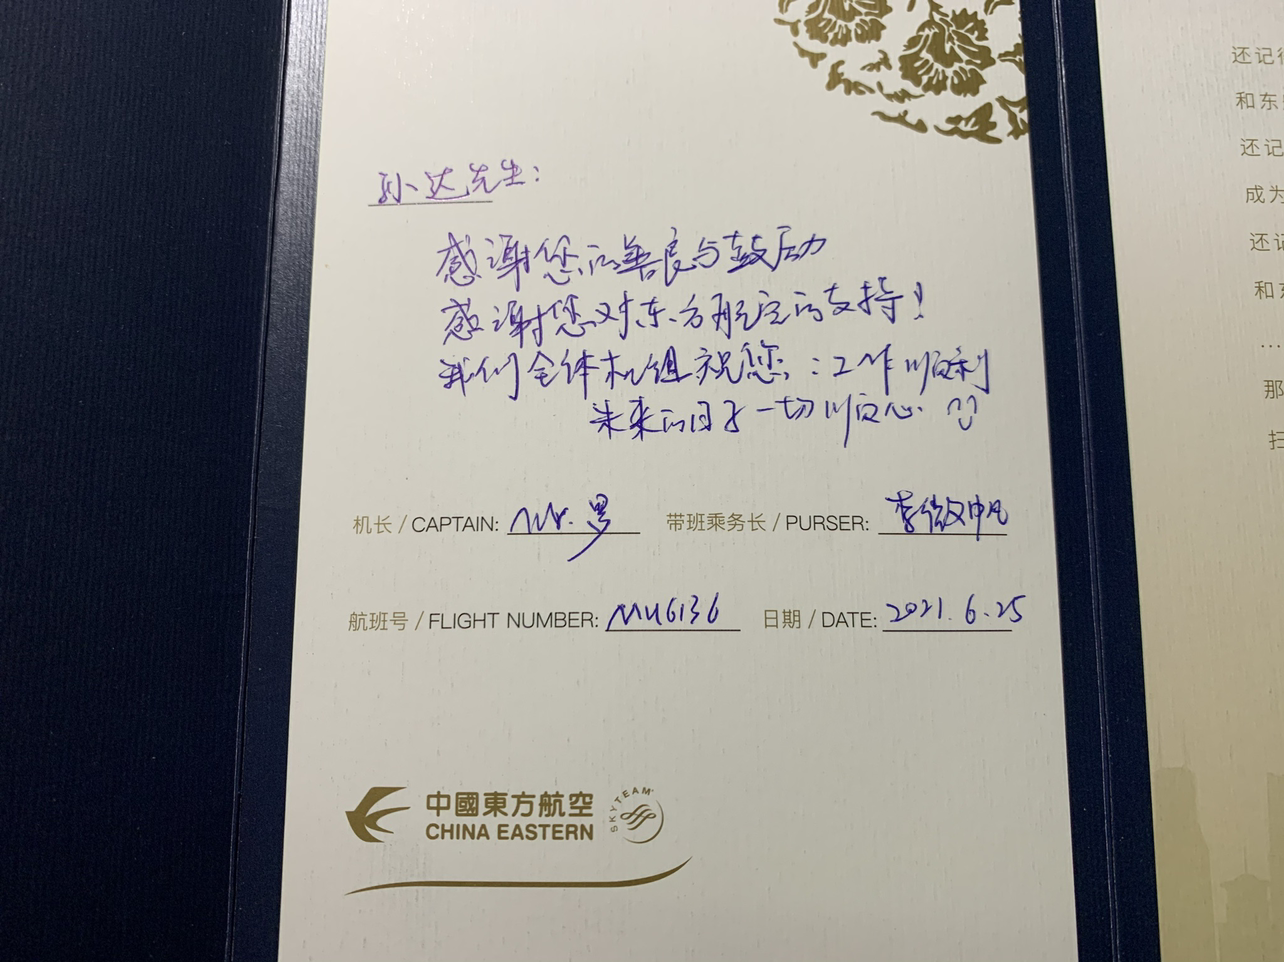 孙达先生:
感谢您的善良与鼓励
感谢您对东方航空的支持!
我们全体机组祝您:工作顺利
未来的日子一切顺心
机长 / CAPTAIN: Mr.
带班乘务长 / PURSER:
航班号 / FLIGHT NUMBER: MU6136
日期 / DATE: 2021.6.25
中國東方航空
CHINA EASTERN
SKYTEAM
还记
和东
还记
成为
还记
和
……
那
扫